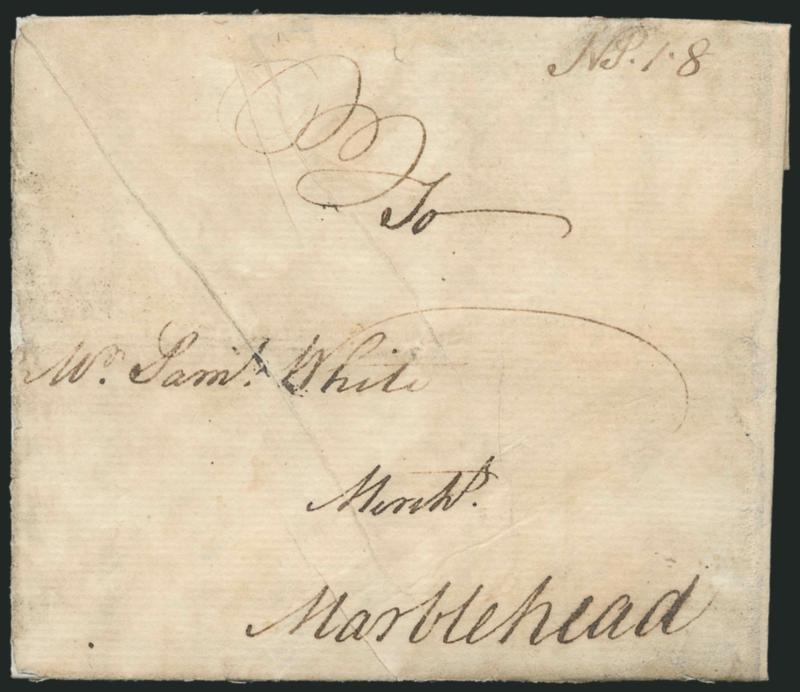 NP. 1·8
To
Mr. Saml. White
Mercht.
Marblehead